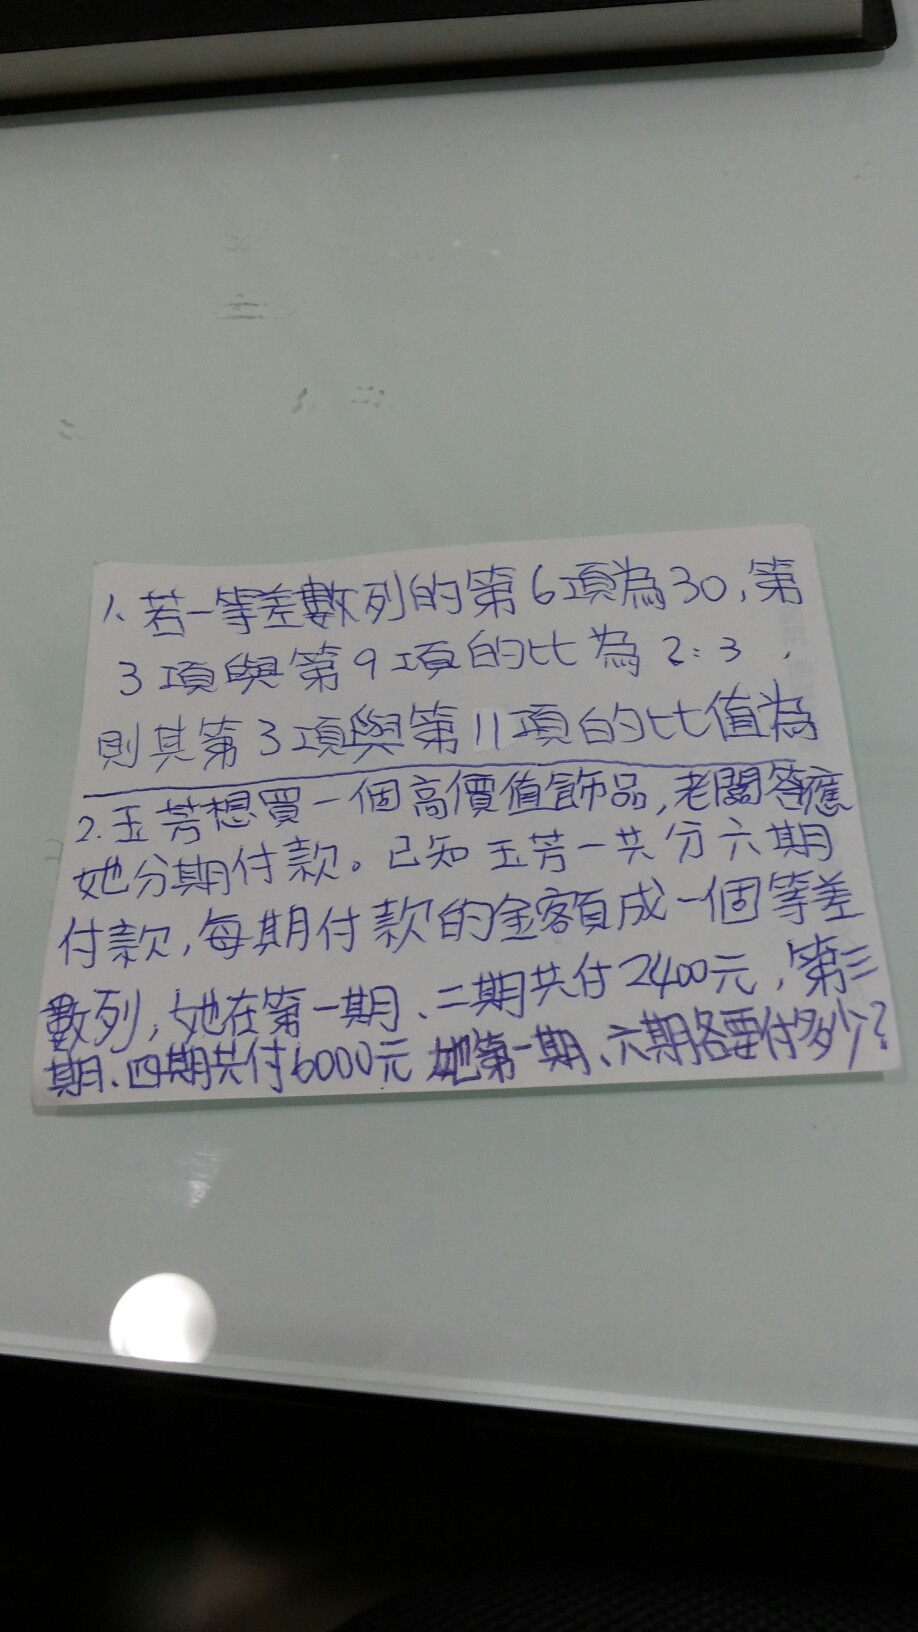 1. 若一等差數列的第6項為30,第
3項與第9項的比為2:3,
則其第3項與第11項的比值為
2. 玉芳想買一個高價值飾品,老闆答應
她分期付款。已知玉芳一共分六期
付款,每期付款的金額成一個等差
數列,她在第一期、二期共付2400元,第三
期、四期共付6000元 她第一期、六期各要付多少?